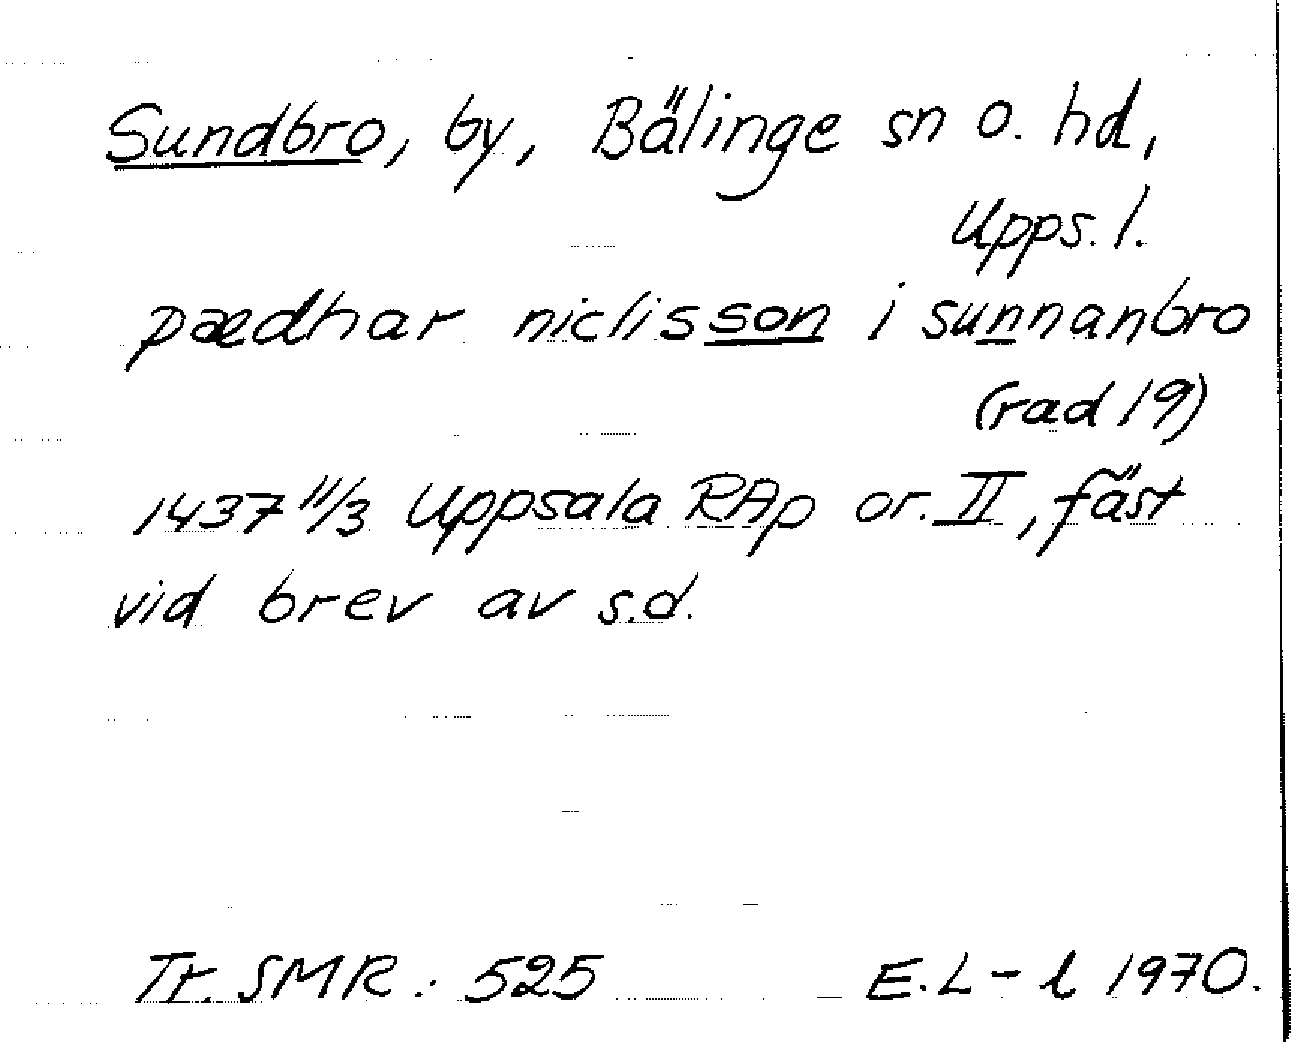 Sundbro, by, Bälinge sn o. hd,
Upps. l.
pædhar niclisson i sunnanbro
(rad 19)
1437 11/3 Uppsala RAp or. II, fäst
vid brev av s.d.
Tr. SMR.: 525 E. L-l 1970.